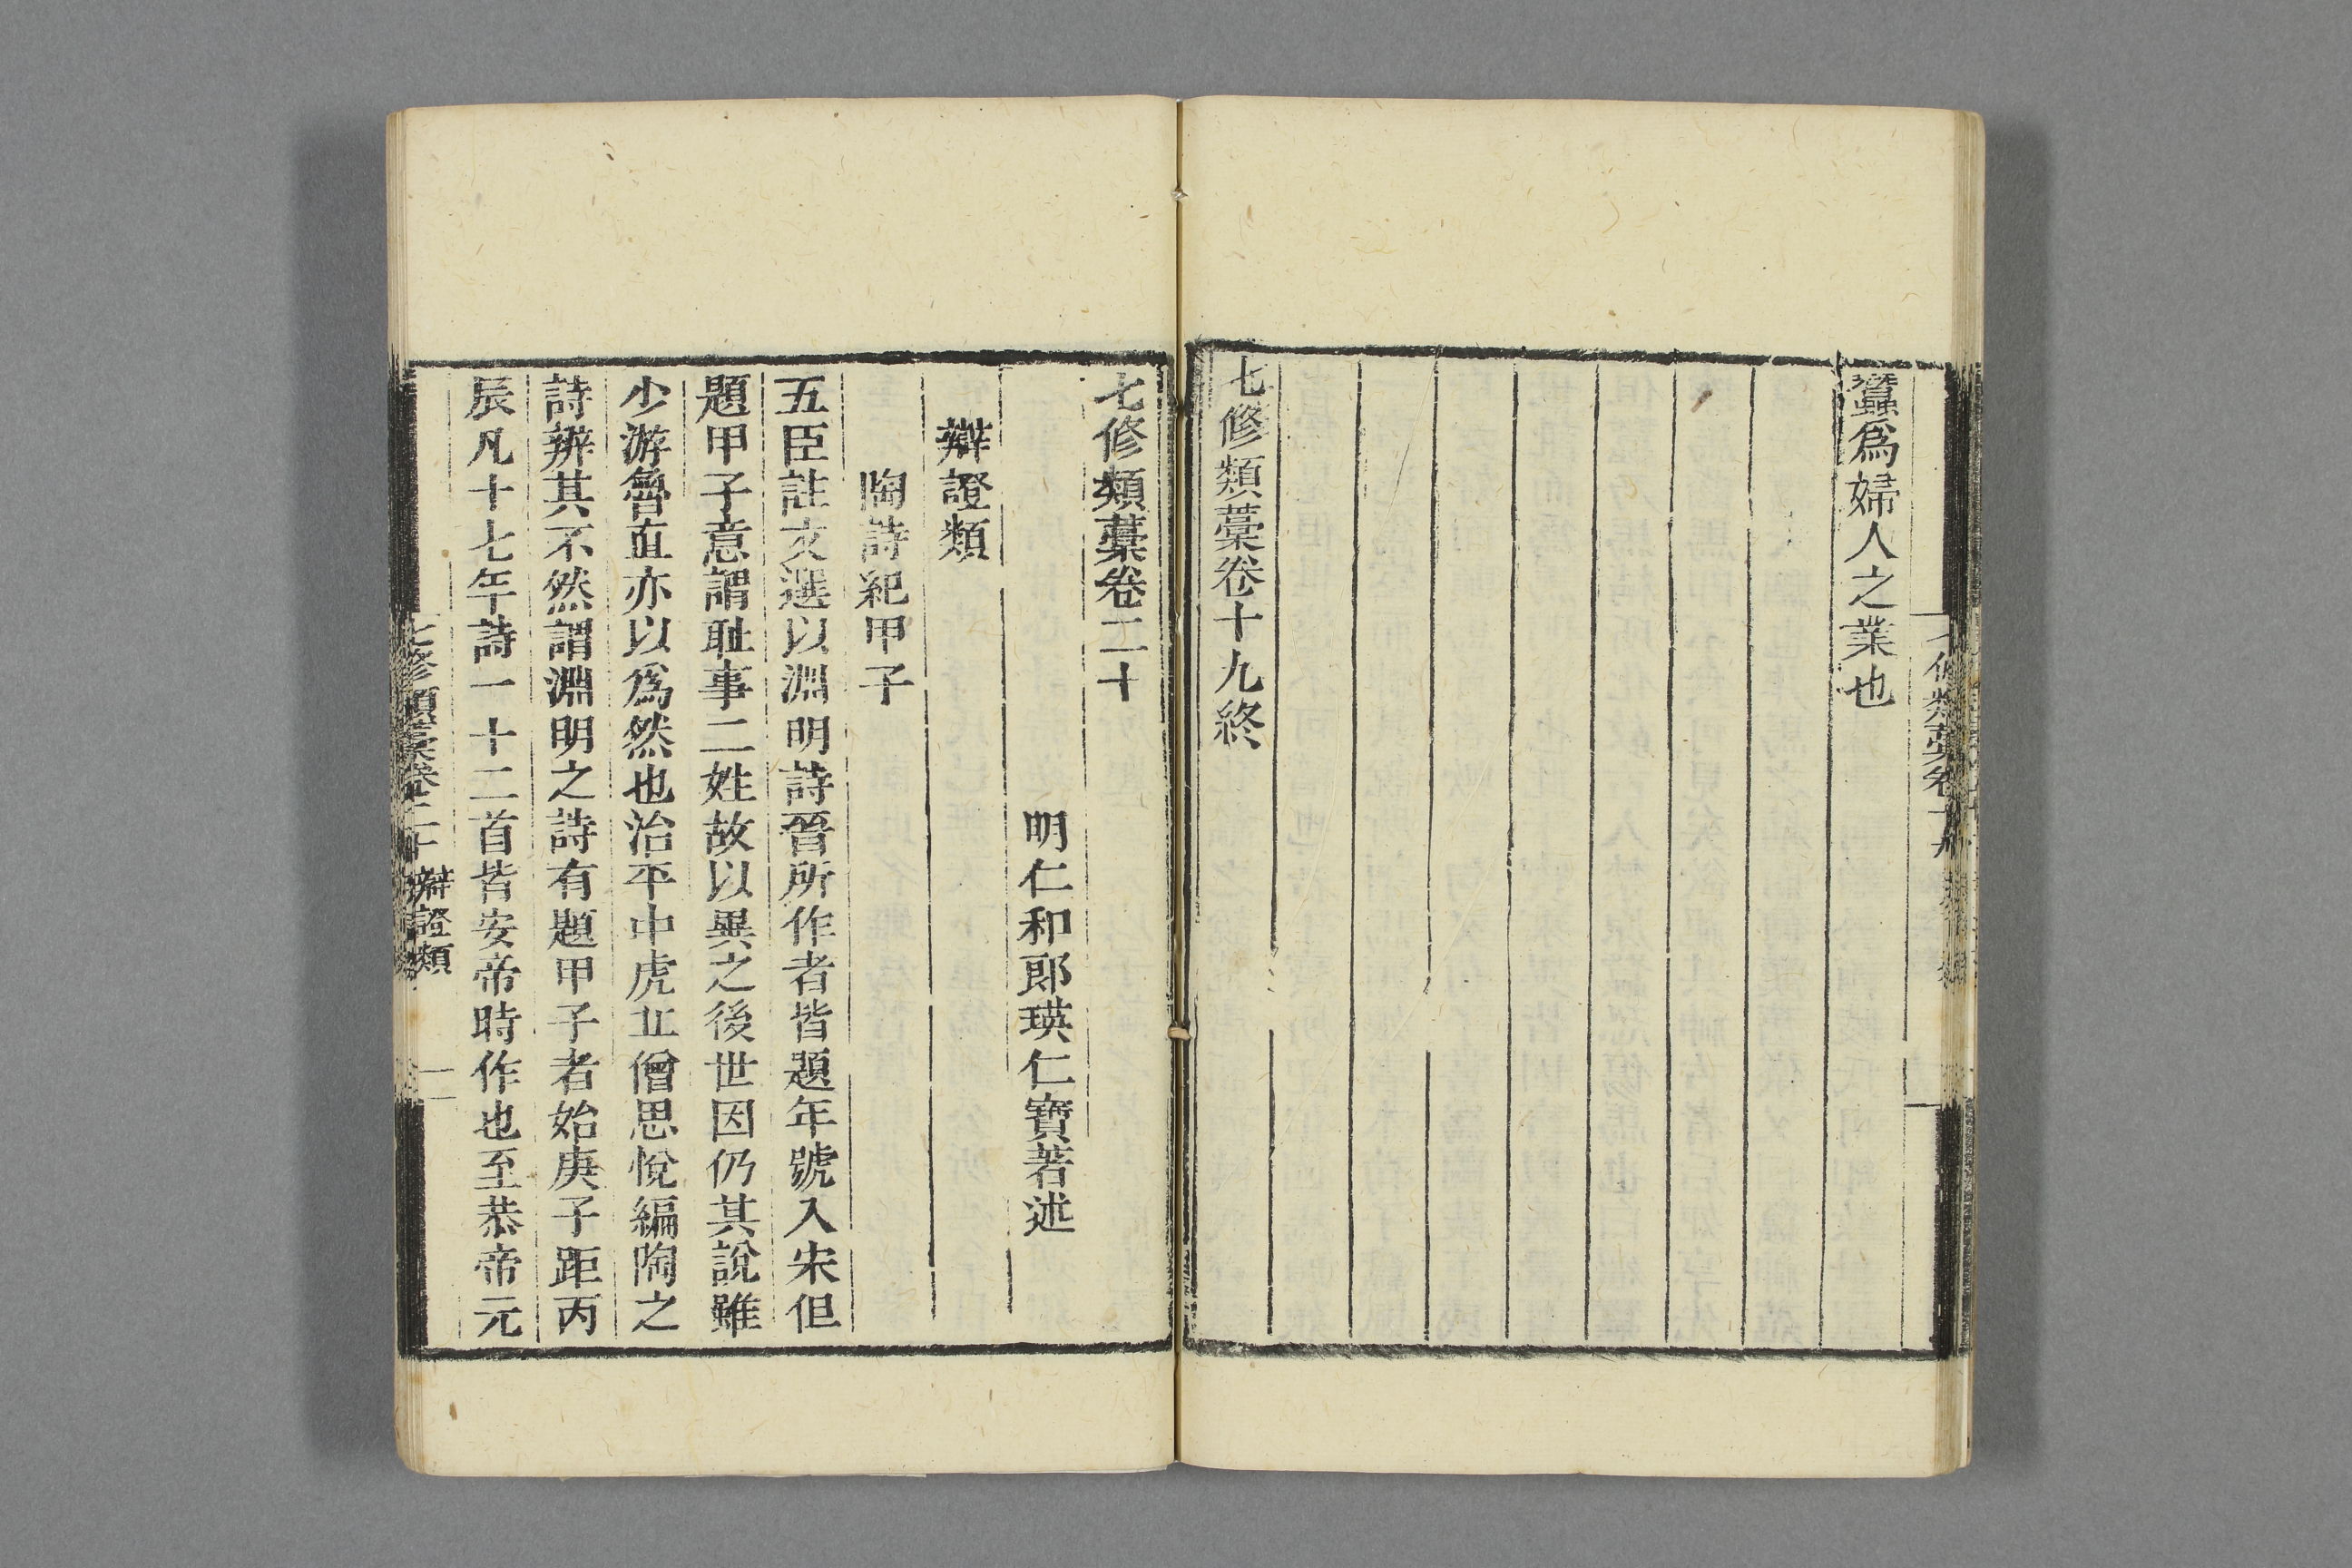 蠶爲婦人之業也
七修類藁卷十九終
七修類藁卷二十
明仁和郎瑛仁寶著述
辯證類
陶詩紀甲子
五臣註文選以淵明詩晉所作者皆題年號入宋但
題甲子意謂耻事二姓故以異之後世因仍其說雖
少游魯直亦以爲然也治平中虎丘僧思悅編陶之
詩辨其不然謂淵明之詩有題甲子者始庚子距丙
辰凡十七年詩一十二首皆安帝時作也至恭帝元
七修類藁卷二十 辯證類 一